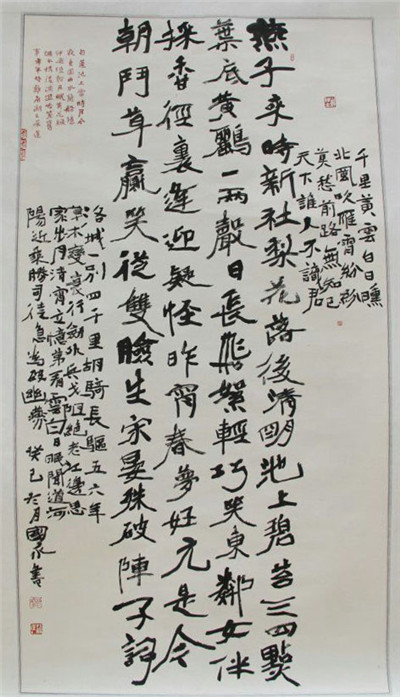 千里黄雲白日曛
北風吹雁雪紛紛
莫愁前路無知己
天下誰人不識君
燕子来時新社梨花落後清明池上碧苔三四點
葉底黄鸝一兩聲日長飛絮輕巧笑東鄰女伴
採香徑裏逢迎疑怪昨宵春夢好元是今
朝鬥草贏笑從雙臉生宋晏殊破陣子詞
洛城一别四千里胡騎長驅五六年
草木變衰行劍外兵戈阻絶老江邊思
家步月清宵立憶弟看雲白日眠聞道河
陽近乘勝司徒急為破幽燕 癸巳六月國永書